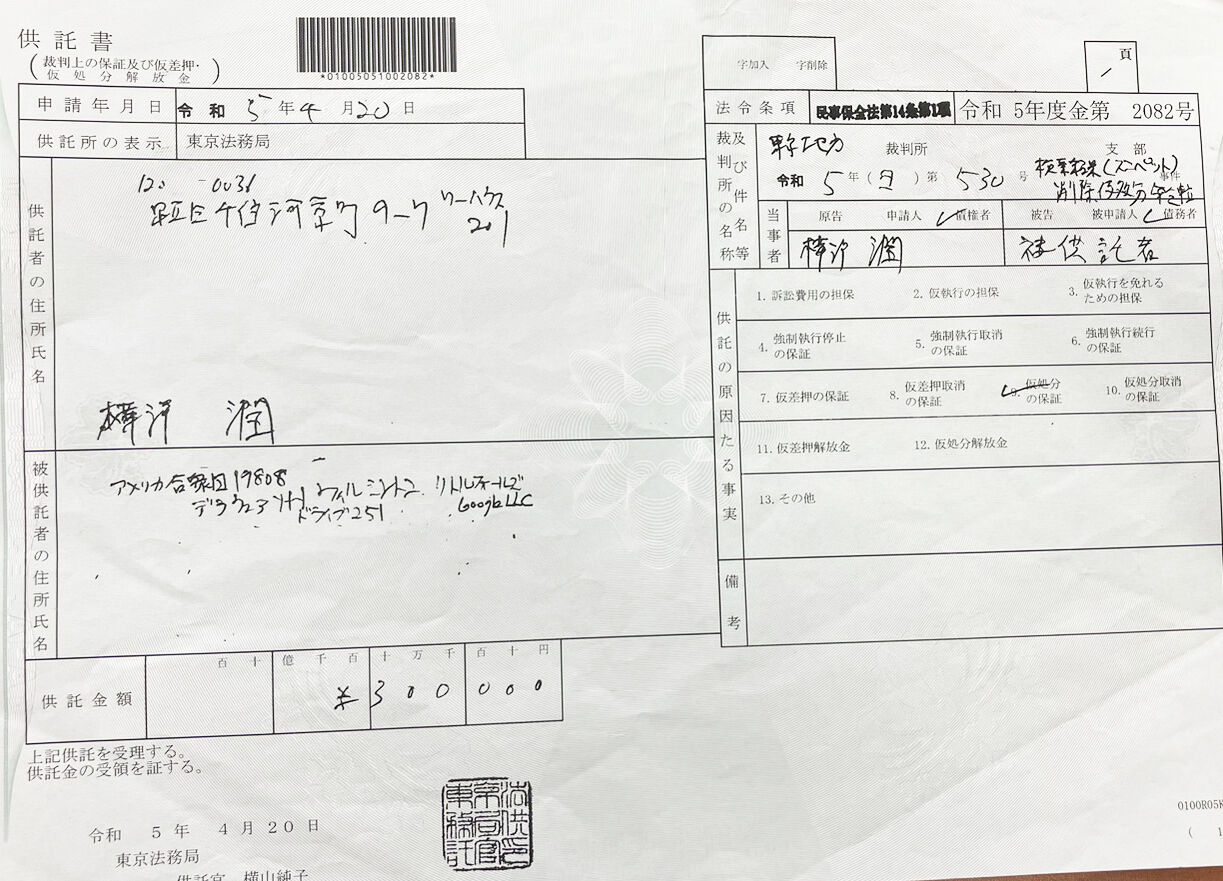 供託書
(裁判上の保証及び仮差押・
仮処分解放金)
*01005051002082*
申請年月日 令和 5年4月20日
供託所の表示 東京法務局
供託者の住所氏名
120-0031
足立区千住河原町9-7
201
樺沢 潤
被供託者の住所氏名
アメリカ合衆国19808
デラウェア州 ウィルミントン リトルフォールズ
ドライブ251 Google LLC
供託金額
百 十 億 千 百 十 万 千 百 十 円
¥300000
上記供託を受理する。
供託金の受領を証する。
令和 5年 4月20日
東京法務局
供託官 横山純子
東京法務局供託官印
字加入 字削除
頁
1
法令条項 民事保全法第14条第1項 令和 5年度金第 2082号
裁判所の名称及び件名等
東京地方 裁判所 支部
令和 5年(ヨ)第 530号 事件
当事者
原告 申請人 債権者
被告 被申請人 債務者
樺沢 潤
被供託者
供託の原因たる事実
1. 訴訟費用の担保
2. 仮執行の担保
3. 仮執行を免れるための担保
4. 強制執行停止の保証
5. 強制執行取消の保証
6. 強制執行続行の保証
7. 仮差押の保証
8. 仮差押取消の保証
9. 仮処分の保証
10. 仮処分取消の保証
11. 仮差押解放金
12. 仮処分解放金
13. その他
備考
0100R05K
( 1